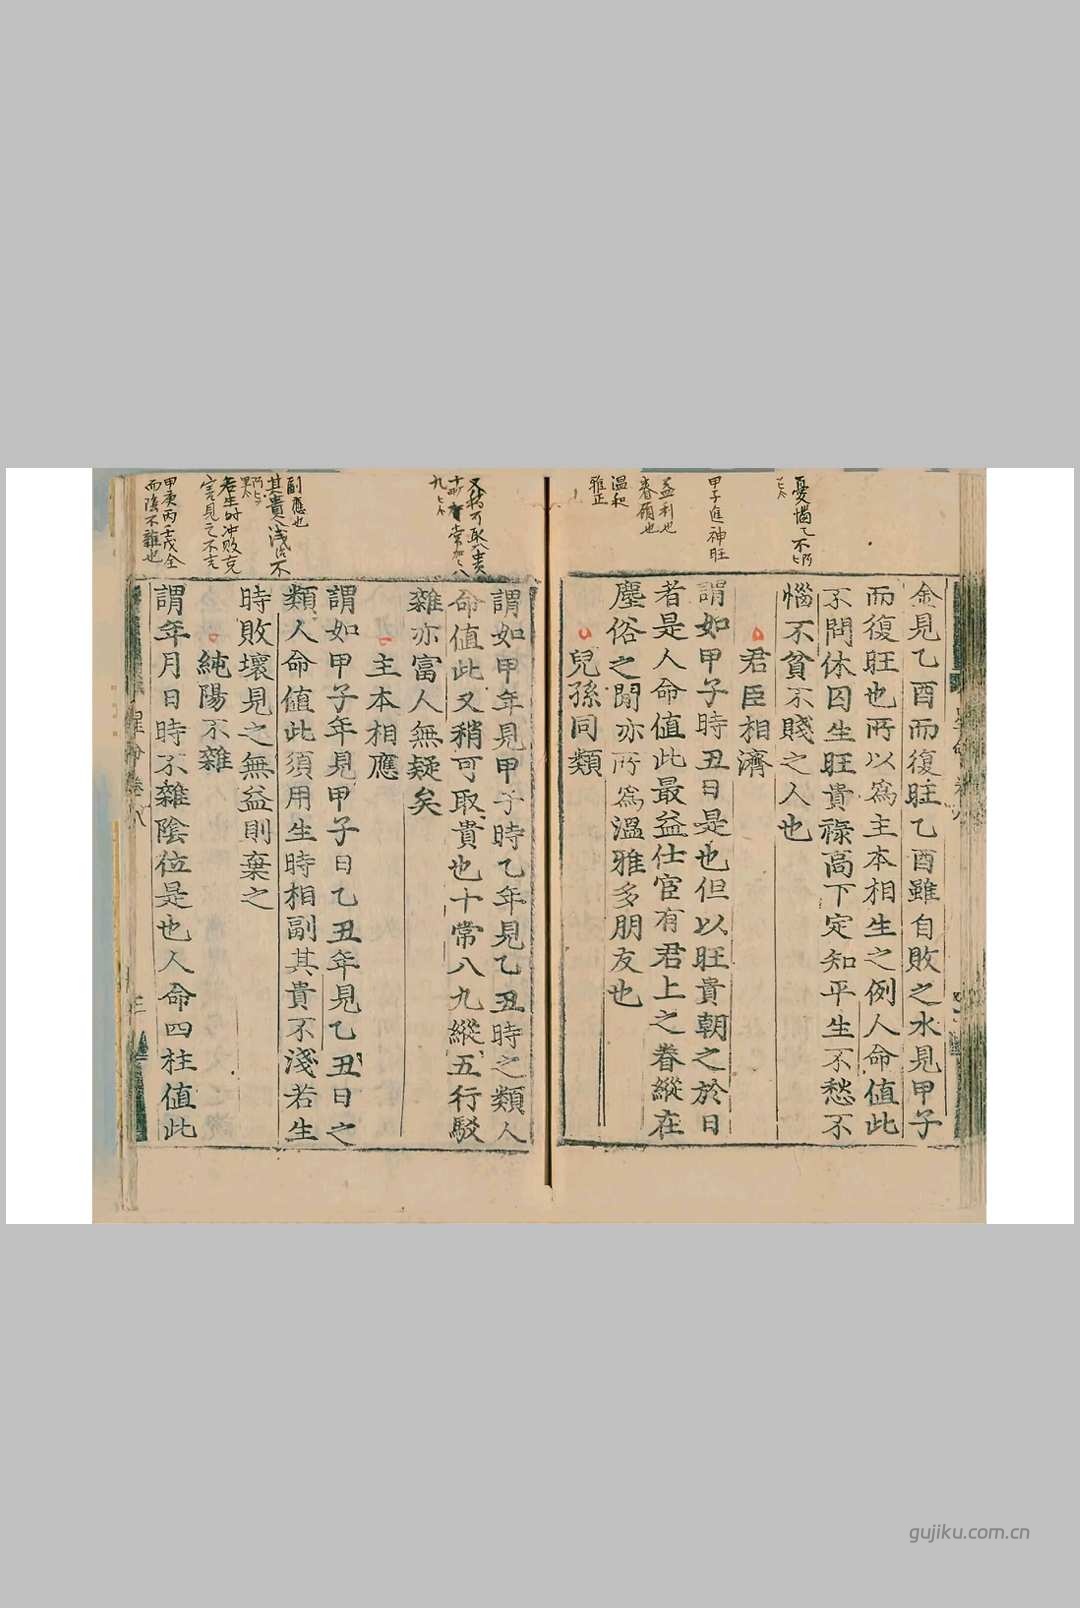 憂惱乙不
甲子進神旺
益利也
眷顧也
温和
雅正
金見乙酉而復旺乙酉雖自敗之水見甲子
而復旺也所以為主本相生之例人命值此
不問休囚生旺貴祿高下定知平生不愁不
惱不貧不賤之人也
君臣相濟
謂如甲子時丑日是也但以旺貴朝之於日
者是人命值此最益仕宦有君上之眷縱在
塵俗之間亦所為溫雅多朋友也
兒孫同類
副應也
其貴人淺不
老生时冲败克
害見之不吉
甲庚丙壬戊全
而陰不雜也
謂如甲年見甲子時乙年見乙丑時之類人
命值此又稍可取貴也十常八九縱五行駁
雜亦富人無疑矣
主本相應
謂如甲子年見甲子日乙丑年見乙丑日之
類人命值此須用生時相副其貴不淺若生
時敗壞見之無益則棄之
純陽不雜
謂年月日時不雜陰位是也人命四柱值此
卷八
三
gujiku.com.cn